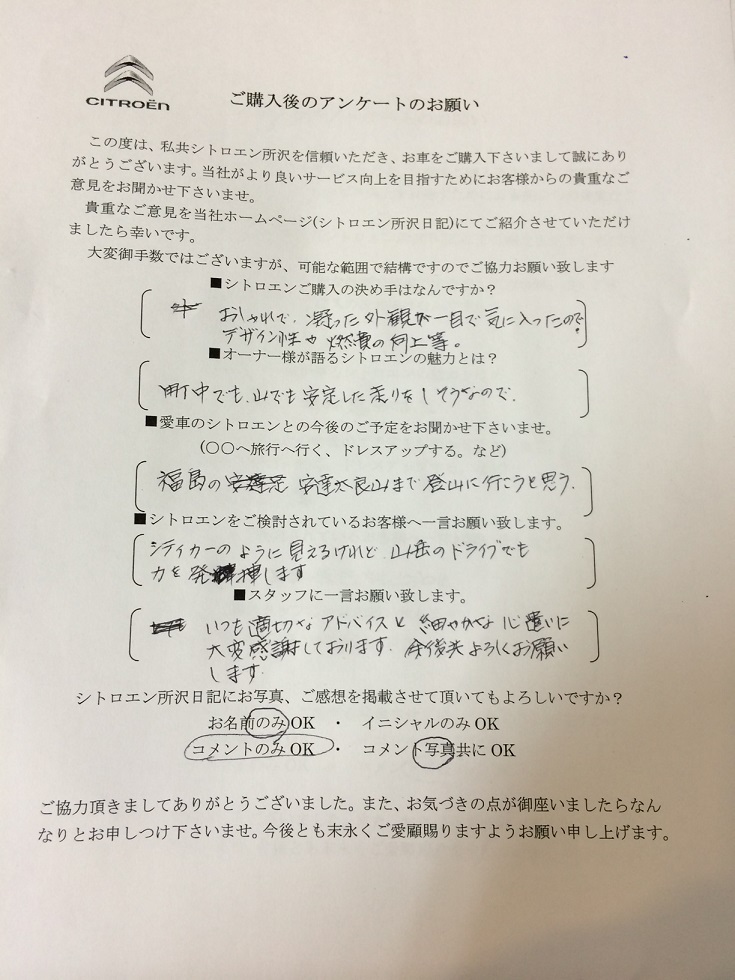 CITROËN
ご購入後のアンケートのお願い
この度は、私共シトロエン所沢を信頼いただき、お車をご購入下さいまして誠にあり
がとうございます。当社がより良いサービス向上を目指すためにお客様からの貴重なご
意見をお聞かせ下さいませ。
貴重なご意見を当社ホームページ(シトロエン所沢日記)にてご紹介させていただけ
ましたら幸いです。
大変御手数ではございますが、可能な範囲で結構ですのでご協力お願い致します
■シトロエンご購入の決め手はなんですか?
おしゃれで、凝った外観が一目で気に入ったので
デザイン性や燃費の向上等。
■オーナー様が語るシトロエンの魅力とは?
町中でも、山でも安定した走りをしそうなので、
■愛車のシトロエンとの今後のご予定をお聞かせ下さいませ。
(〇〇へ旅行へ行く、ドレスアップする。など)
福島の 安達太良山まで登山に行こうと思う、
■シトロエンをご検討されているお客様へ一言お願い致します。
シティカーのように見えるけれど、山岳のドライブでも
力を発揮します
■スタッフに一言お願い致します。
いつも適切なアドバイスと細やかな心遣いに
大変感謝しております、今後共よろしくお願い
します、
シトロエン所沢日記にお写真、ご感想を掲載させて頂いてもよろしいですか?
お名前のみOK ・ イニシャルのみOK
コメントのみOK ・ コメント写真共にOK
ご協力頂きましてありがとうございました。また、お気づきの点が御座いましたらなん
なりとお申しつけ下さいませ。今後とも末永くご愛顧賜りますようお願い申し上げます。